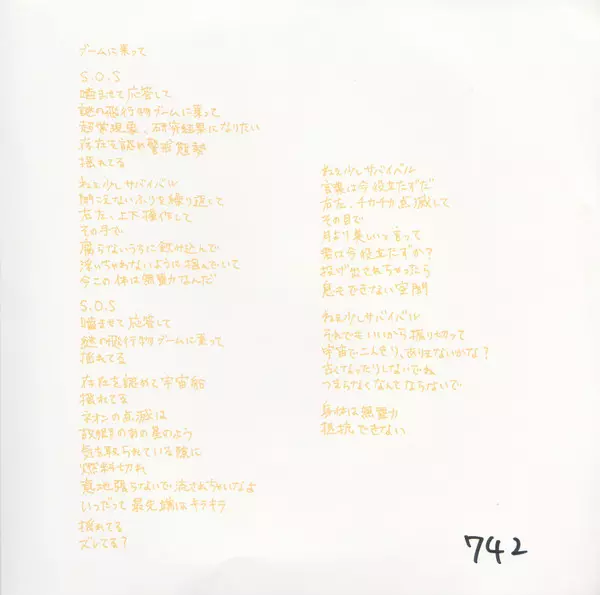 ブームに乗って
S.O.S
噛ませて応答して
謎の飛行物ブームに乗って
超常現象、研究結果になりたい
存在を認め警戒態勢
揺れてる
もっと少しサバイバル
聞こえないふりを繰り返して
右左、上下操作して
その手で
腐らないうちに飲み込んで
浮いちゃわないように掴んでいて
今この体は無重力なんだ
S.O.S
噛ませて応答して
謎の飛行物ブームに乗って
揺れてる
存在を認めて宇宙船
揺れてる
ネオンの点滅は
故郷のあの星のよう
気を取られている隙に
燃料切れ
意地張らないで流されちゃいなよ
いつだって最先端はキラキラ
揺れてる
ズレてる?
少しサバイバル
言葉は今役立たずだ
右左、チカチカ点滅して
その目で
月より美しいと言って
愛は今役立たずか?
投げ出されちゃったら
息もできない空間
少しサバイバル
それでもいいから振り切って
宇宙でこんきり、ありえないかな?
古くなったりしないでね
つまらなくなんてならないで
身体は無重力
抵抗できない
742